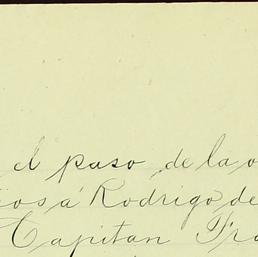 el paso de la o
ios á Rodrigo de
Capitan Fra